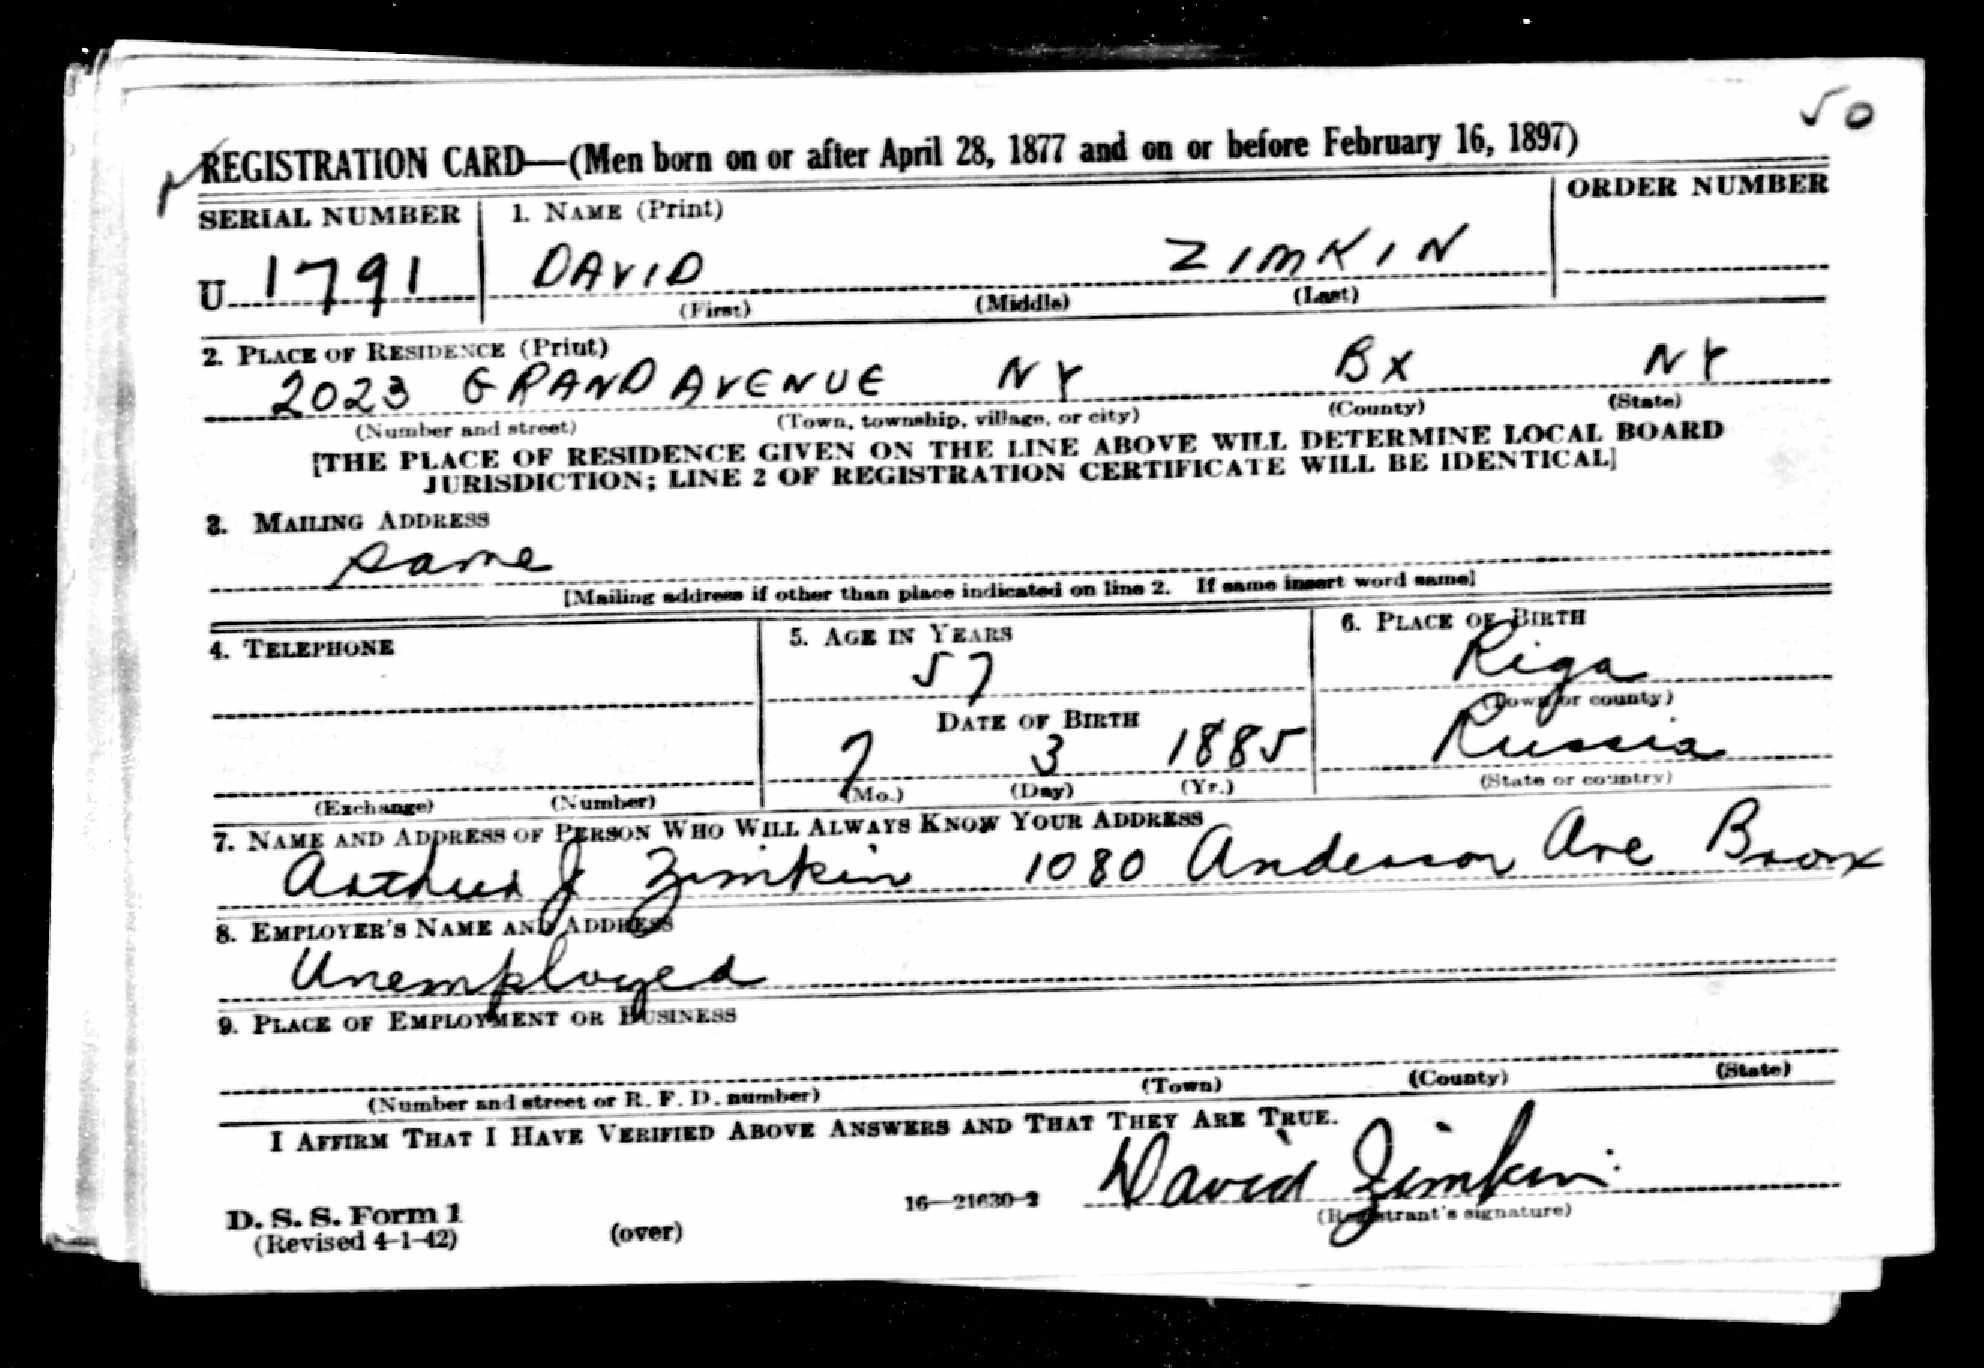 50
REGISTRATION CARD—(Men born on or after April 28, 1877 and on or before February 16, 1897)
SERIAL NUMBER 1. NAME (Print) ORDER NUMBER
U 1791 DAVID ZIMKIN
(First) (Middle) (Last)
2. PLACE OF RESIDENCE (Print)
2023 GRAND AVENUE NY BX NY
(Number and street) (Town, township, village, or city) (County) (State)
[THE PLACE OF RESIDENCE GIVEN ON THE LINE ABOVE WILL DETERMINE LOCAL BOARD
JURISDICTION; LINE 2 OF REGISTRATION CERTIFICATE WILL BE IDENTICAL]
3. MAILING ADDRESS
same
[Mailing address if other than place indicated on line 2. If same insert word same]
4. TELEPHONE 5. AGE IN YEARS 6. PLACE OF BIRTH
57 Riga
(Town or county)
DATE OF BIRTH
7 3 1885 Russia
(Exchange) (Number) (Mo.) (Day) (Yr.) (State or country)
7. NAME AND ADDRESS OF PERSON WHO WILL ALWAYS KNOW YOUR ADDRESS
Arthur J Zimkin 1080 Anderson Ave Bronx
8. EMPLOYER'S NAME AND ADDRESS
Unemployed
9. PLACE OF EMPLOYMENT OR BUSINESS
(Number and street or R. F. D. number) (Town) (County) (State)
I AFFIRM THAT I HAVE VERIFIED ABOVE ANSWERS AND THAT THEY ARE TRUE.
David Zimkin
D. S. S. Form 1 16—21630-2 (Registrant's signature)
(Revised 4-1-42) (over)